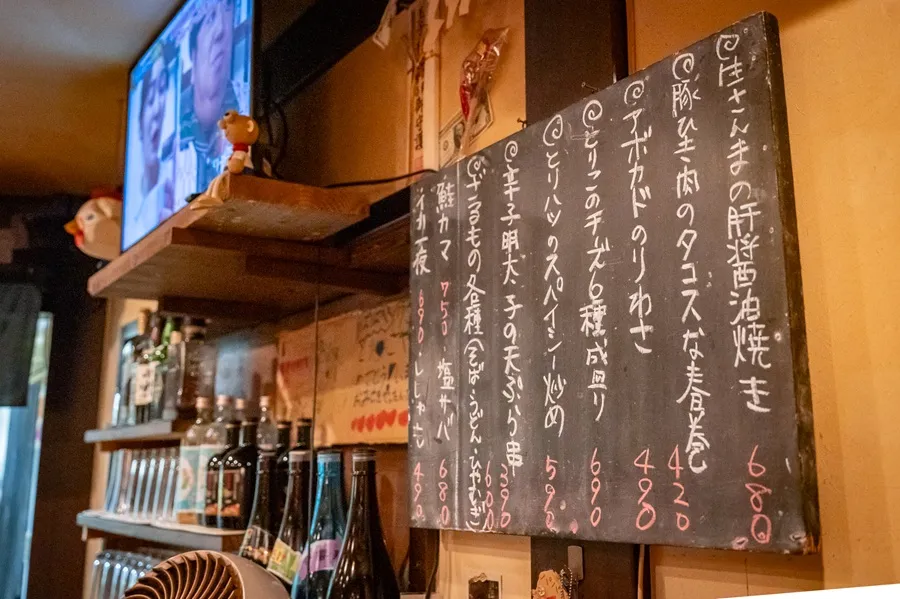 生さんまの肝醤油焼き 680
豚ひき肉のタコスな春巻 420
アボカドのりわさ 490
とりこのチーズ6種盛り 690
とりハツのスパイシー炒め 590
辛子明太子の天ぷら串 390
ざるもの各種(そば・うどん・ひやむぎ) 600
鮭カマ 750・塩サバ 680
イカ一夜 690・ししゃも 490